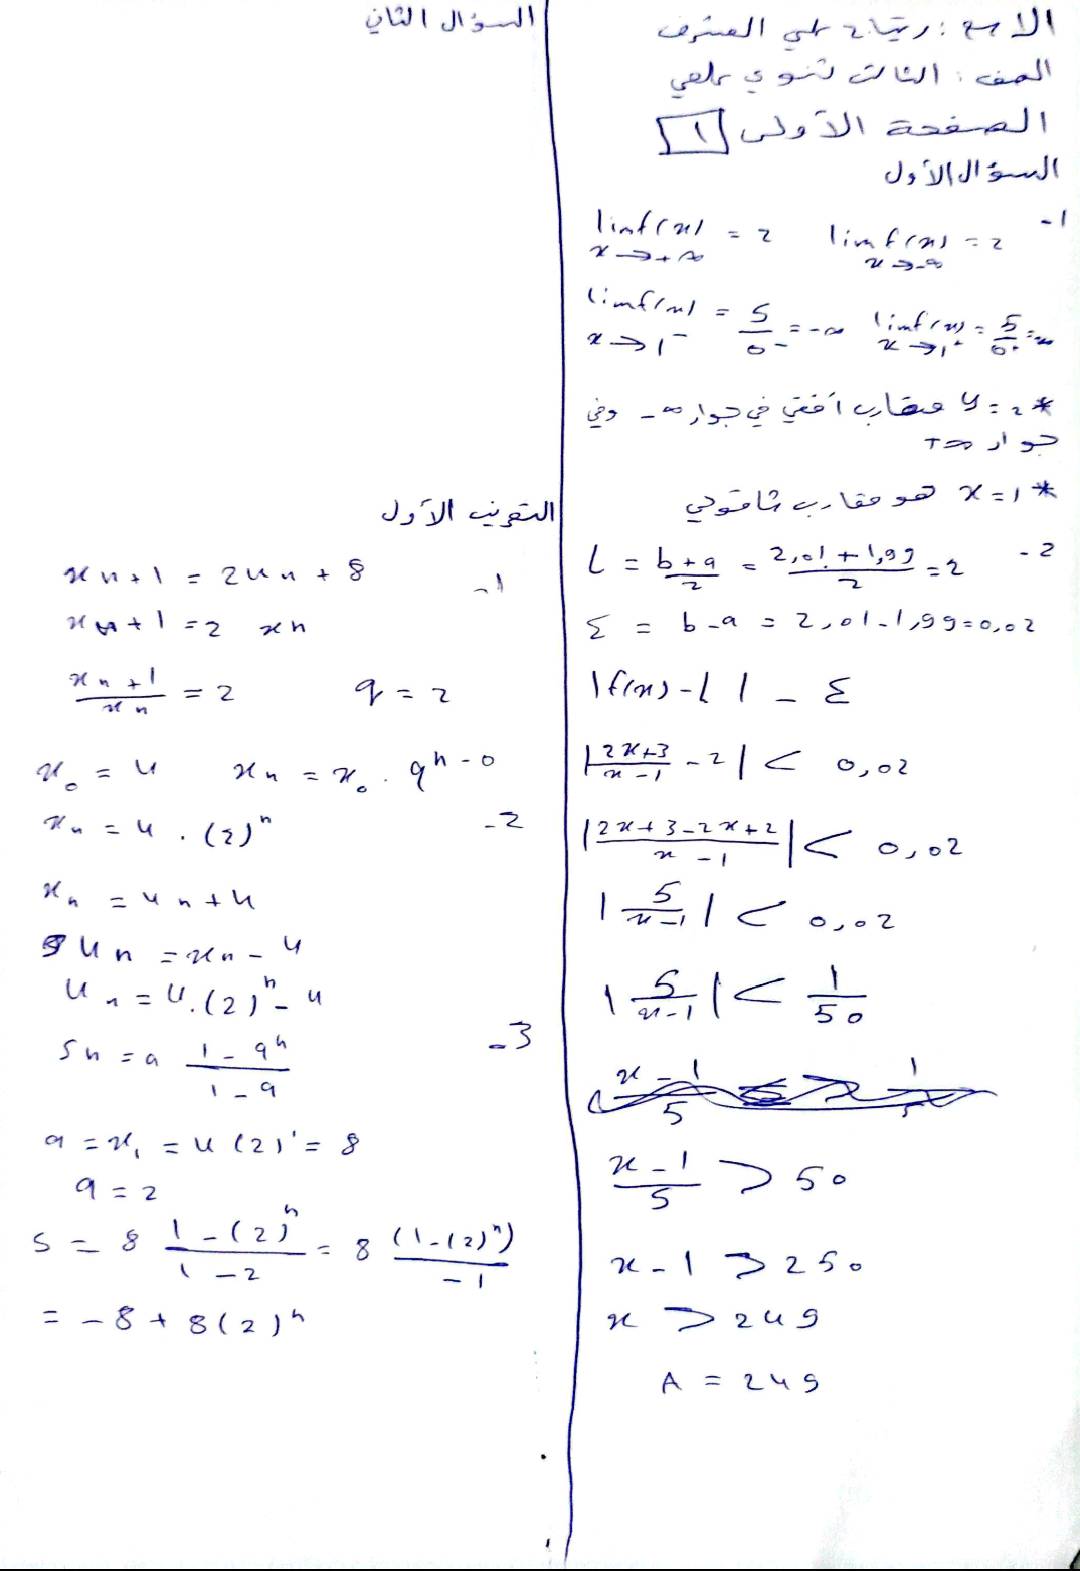 الاسم : رتياح علي المشرف
الصف : الثالث ثنوي علمي
الصفحة الأولى 1
السؤال الأول
1- lim f(x) x→-∞ = 2 lim f(x) x→+∞ = 2
lim f(x) x→1+ = 5/0+ = ∞ lim f(x) x→1- = 5/0- = -∞
* y = 2 مقارب أفقي في جوار -∞ وفي
جوار +∞
* x = 1 هو مقارب شاقولي
2- L = (b+a)/2 = (2,01+1,99)/2 = 2
ε = b-a = 2,01-1,99=0,02
|f(x)-L| - ε
|(2x+3)/(x-1) - 2| < 0,02
|(2x+3-2x+2)/(x-1)| < 0,02
|5/(x-1)| < 0,02
|5/(x-1)| < 1/50
(x-1)/5 > 50
x-1 > 250
x > 249
A = 249
السؤال الثاني
التمرين الأول
1- xn+1 = 2un + 8
xn+1 = 2 xn
xn+1/xn = 2 q = 2
x0 = 4 xn = x0 . q^n-0
2- xn = 4 . (2)^n
xn = un + 4
un = xn - 4
un = 4.(2)^n - 4
3- Sn = a (1-q^n)/(1-q)
a = x1 = 4(2)^1 = 8
q = 2
S = 8 (1-(2)^n)/(1-2) = 8 (1-(2)^n)/-1
= -8 + 8(2)^n